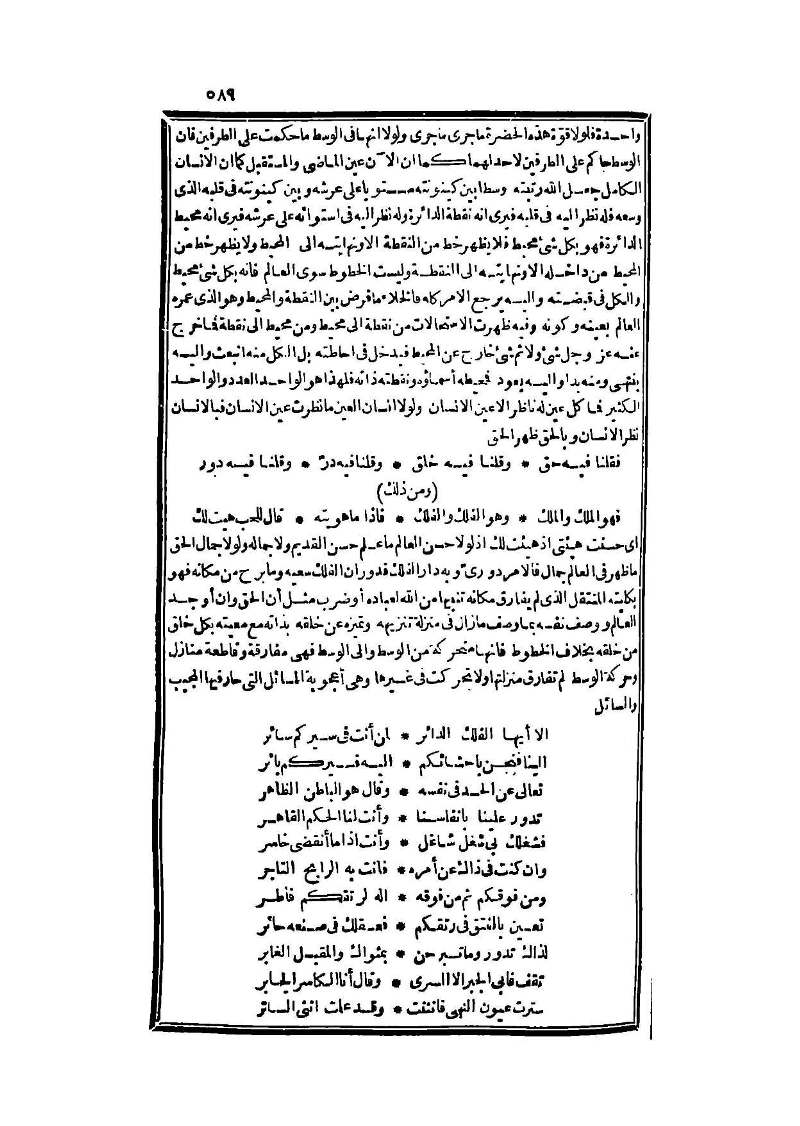 ٥٨٩
واحدة فلولا قوة هذه الحضرة ماجرى ماجرى ولولا انها فى الوسط ما حكمت على الطرفين فان
الوسط حاكم على الطرفين لاحد لهما كما ان الآن عين الماضى والمستقبل كما ان الانسان
الكامل جعل الله رتبته وسطا بين كينونته مستويا على عرشه وبين كينونته فى قلبه الذى
وسعه فله نظر اليه فى قلبه فيرى انه نقطة الدائرة وله نظر اليه فى استوائه على عرشه فيرى انه محيط
الدائرة فهو بكل شئ محيط فلا يظهر خط من النقطة الا ونهايته الى المحيط ولا يظهر خط من
المحيط من داخله الا ونهايته الى النقطة وليست الخطوط سوى العالم فانه بكل شئ محيط
والكل فى قبضته واليه يرجع الامر كله فالخلاء ما فرض بين النقطة والمحيط وهو الذى عمره
العالم بعينه وكونه وفيه ظهرت الاستحالات من نقطة الى محيط ومن محيط الى نقطة فاخرج
عنه عز وجل شئ ولا ثم شئ خارج عن المحيط فيدخل فى احاطته بل الكل منه انبعث واليه
ينتهى ومنه بدا واليه يعود فمحيطه أسماؤه ونقطته ذاته فلهذا هو الواحد العدد والواحد
الكثير فما كل عين له ناظر الا عين الانسان ولولا انسان العين ما نظرت عين الانسان فبالانسان
نظر الانسان وبالحق ظهر الحق
فقلنا فيه حق * وقلنا فيه خلق * وقلنا فيه در * وقلنا فيه دور
(ومن ذلك)
فهو الملك والملك * وهو الفلك والفلك * فاذا ما هويته * قال للحب هيت لك
اى حسنت هيئتى اذ هيئت لك اذ لولا حسن العالم ما علم حسن القديم ولا جماله ولولا جمال الحق
ما ظهر فى العالم جمال فالامر دورى وبه دار الفلك فدوران الفلك سعيه وما برح من مكانه فهو
بكليته المنتقل الذى لم يفارق مكانه تنبيها من الله لعباده أو ضرب مثل أن الحق وان أوجد
العالم ووصف نفسه بما وصف ما زال فى منزلة تنزيهه وتميزه عن خلقه بذاته مع معيته بكل خلق
من خلقه بخلاف الخطوط فانها متحركة من الوسط والى الوسط فهى مفارقة وقاطعة منازل
وحركة الوسط لم تفارق منزلتها ولا تحركت فى غيرها وهى أعجوبة المسائل التى حار فيها المجيب
والسائل
الا أيها الفلك الدائر * لمن أنت فى سيركم سائر
الينا فنحن باحشائكم * اليه فسيركم بائر
تعالى عن الحد فى نفسه * وقال هو الباطن الظاهر
تدور علينا بانفاسنا * وأنت لنا الحكم القاهر
فشغلك بى شغل شاغل * وأنت اذا ما أنقضى خاسر
وان كنت فى ذاك عن أمره * فانت به الرابح التاجر
ومن فوقكم ثم من فوقه * اله لرتقكم فاطر
تعين بالفتق فى رتقكم * فعقلك فى صنعه حائر
لذاك تدور وما تبرحن * بمثواك والمقبل الغابر
تقف فابى الجبر الا السرى * وقال أنا الكاسر الجابر
سترت عيون النهى فانثنت * وقد علمت انى الساتر